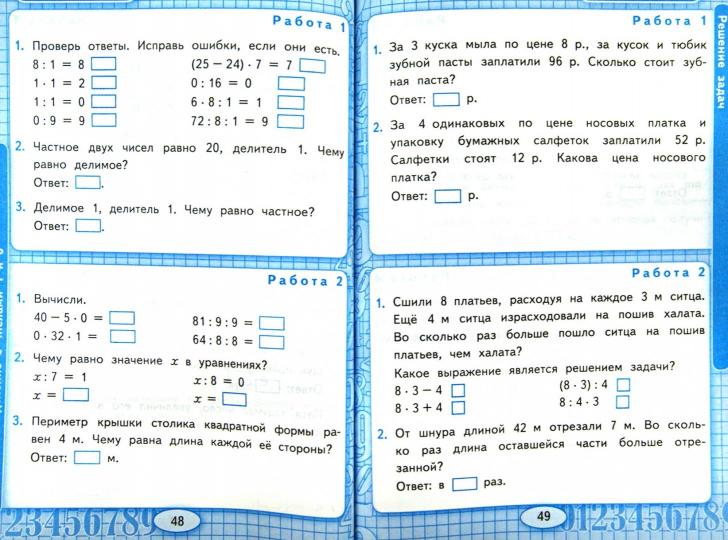 Работа 1
1. Проверь ответы. Исправь ошибки, если они есть.
8 : 1 = 8
(25 − 24) · 7 = 7
1 · 1 = 2
0 : 16 = 0
1 : 1 = 0
6 · 8 : 1 = 1
0 : 9 = 9
72 : 8 : 1 = 9
2. Частное двух чисел равно 20, делитель 1. Чему
равно делимое?
Ответ: .
3. Делимое 1, делитель 1. Чему равно частное?
Ответ: .
Работа 2
1. Вычисли.
40 − 5 · 0 =
81 : 9 : 9 =
0 · 32 · 1 =
64 : 8 : 8 =
2. Чему равно значение x в уравнениях?
x : 7 = 1
x : 8 = 0
x =
x =
3. Периметр крышки столика квадратной формы ра-
вен 4 м. Чему равна длина каждой её стороны?
Ответ: м.
23456789
48
Работа 1
1. За 3 куска мыла по цене 8 р., за кусок и тюбик
зубной пасты заплатили 96 р. Сколько стоит зуб-
ная паста?
Ответ: р.
2. За 4 одинаковых по цене носовых платка и
упаковку бумажных салфеток заплатили 52 р.
Салфетки стоят 12 р. Какова цена носового
платка?
Ответ: р.
Работа 2
1. Сшили 8 платьев, расходуя на каждое 3 м ситца.
Ещё 4 м ситца израсходовали на пошив халата.
Во сколько раз больше пошло ситца на пошив
платьев, чем халата?
Какое выражение является решением задачи?
8 · 3 − 4
(8 · 3) : 4
8 · 3 + 4
8 : 4 · 3
2. От шнура длиной 42 м отрезали 7 м. Во сколь-
ко раз длина оставшейся части больше отре-
занной?
Ответ: в раз.
49
0123456789
Решение задач